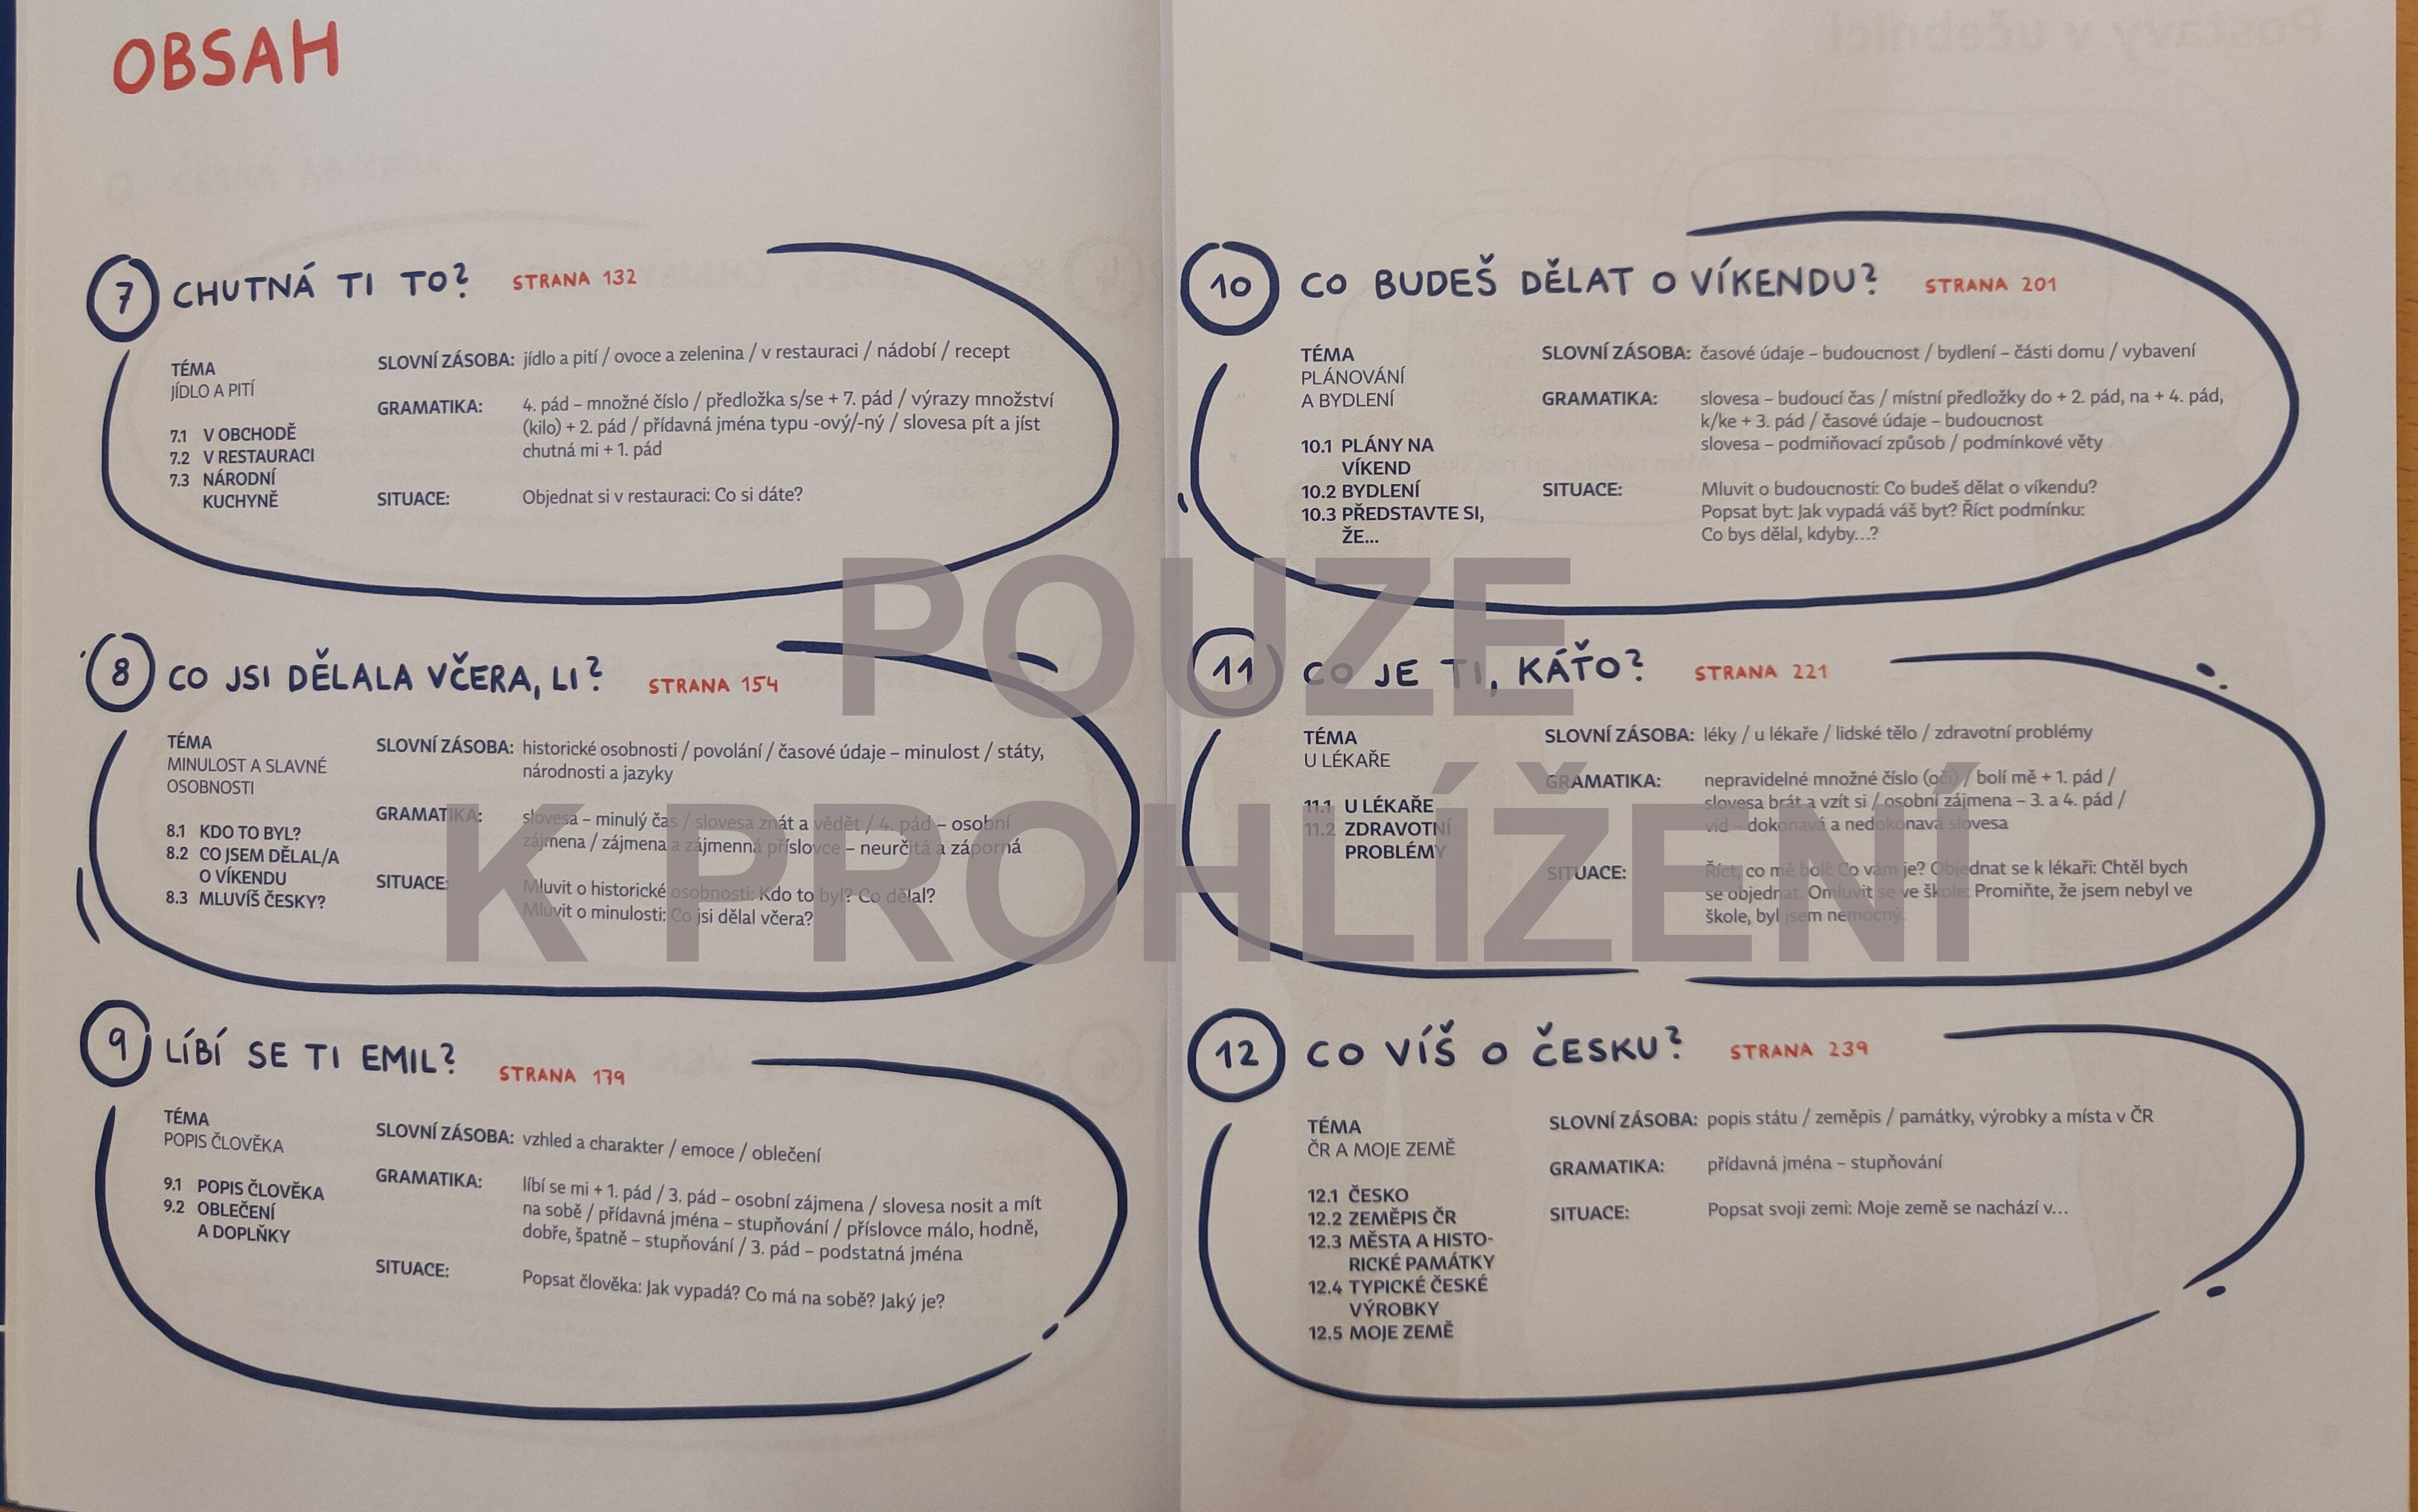 OBSAH
7 CHUTNÁ TI TO? STRANA 132
TÉMA
JÍDLO A PITÍ
7.1 V OBCHODĚ
7.2 V RESTAURACI
7.3 NÁRODNÍ
KUCHYNĚ
SLOVNÍ ZÁSOBA: jídlo a pití / ovoce a zelenina / v restauraci / nádobí / recept
GRAMATIKA: 4. pád – množné číslo / předložka s/se + 7. pád / výrazy množství
(kilo) + 2. pád / přídavná jména typu -ový/-ný / slovesa pít a jíst
chutná mi + 1. pád
SITUACE: Objednat si v restauraci: Co si dáte?
8 CO JSI DĚLALA VČERA, LI? STRANA 154
TÉMA
MINULOST A SLAVNÉ
OSOBNOSTI
8.1 KDO TO BYL?
8.2 CO JSEM DĚLAL/A
O VÍKENDU
8.3 MLUVÍŠ ČESKY?
SLOVNÍ ZÁSOBA: historické osobnosti / povolání / časové údaje – minulost / státy,
národnosti a jazyky
GRAMATIKA: slovesa – minulý čas / slovesa znát a vědět / 4. pád – osobní
zájmena / zájmena a zájmenná příslovce – neurčitá a záporná
SITUACE: Mluvit o historické osobnosti: Kdo to byl? Co dělal?
Mluvit o minulosti: Co jsi dělal včera?
9 LÍBÍ SE TI EMIL? STRANA 179
TÉMA
POPIS ČLOVĚKA
9.1 POPIS ČLOVĚKA
9.2 OBLEČENÍ
A DOPLŇKY
SLOVNÍ ZÁSOBA: vzhled a charakter / emoce / oblečení
GRAMATIKA: líbí se mi + 1. pád / 3. pád – osobní zájmena / slovesa nosit a mít
na sobě / přídavná jména – stupňování / příslovce málo, hodně,
dobře, špatně – stupňování / 3. pád – podstatná jména
SITUACE: Popsat člověka: Jak vypadá? Co má na sobě? Jaký je?
10 CO BUDEŠ DĚLAT O VÍKENDU? STRANA 201
TÉMA
PLÁNOVÁNÍ
A BYDLENÍ
10.1 PLÁNY NA
VÍKEND
10.2 BYDLENÍ
10.3 PŘEDSTAVTE SI,
ŽE...
SLOVNÍ ZÁSOBA: časové údaje – budoucnost / bydlení – části domu / vybavení
GRAMATIKA: slovesa – budoucí čas / místní předložky do + 2. pád, na + 4. pád,
k/ke + 3. pád / časové údaje – budoucnost
slovesa – podmiňovací způsob / podmínkové věty
SITUACE: Mluvit o budoucnosti: Co budeš dělat o víkendu?
Popsat byt: Jak vypadá váš byt? Říct podmínku:
Co bys dělal, kdyby...?
11 CO JE TI, KÁŤO? STRANA 221
TÉMA
U LÉKAŘE
11.1 U LÉKAŘE
11.2 ZDRAVOTNÍ
PROBLÉMY
SLOVNÍ ZÁSOBA: léky / u lékaře / lidské tělo / zdravotní problémy
GRAMATIKA: nepravidelné množné číslo (oči) / bolí mě + 1. pád /
slovesa brát a vzít si / osobní zájmena – 3. a 4. pád /
vid – dokonavá a nedokonavá slovesa
SITUACE: Říct, co mě bolí: Co vám je? Objednat se k lékaři: Chtěl bych
se objednat. Omluvit se ve škole: Promiňte, že jsem nebyl ve
škole, byl jsem nemocný.
12 CO VÍŠ O ČESKU? STRANA 239
TÉMA
ČR A MOJE ZEMĚ
12.1 ČESKO
12.2 ZEMĚPIS ČR
12.3 MĚSTA A HISTO-
RICKÉ PAMÁTKY
12.4 TYPICKÉ ČESKÉ
VÝROBKY
12.5 MOJE ZEMĚ
SLOVNÍ ZÁSOBA: popis státu / zeměpis / památky, výrobky a místa v ČR
GRAMATIKA: přídavná jména – stupňování
SITUACE: Popsat svoji zemi: Moje země se nachází v...
POUZE
K PROHLÍŽENÍ
Postavy v učebnici